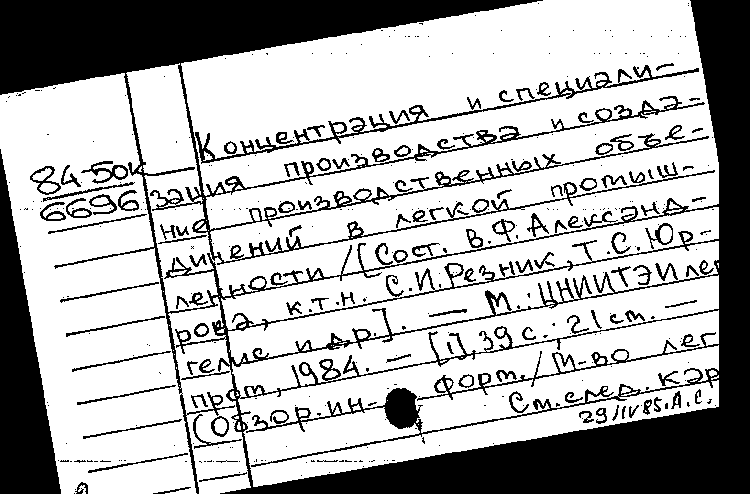 Концентрация и специали-
84-50к
6696
зация производства и созда-
ние производственных объе-
динений в легкой промыш-
ленности / [Сост. В.Ф. Александ-
рова, к.т.н. С.И. Резник, Т.С. Юр-
гелис и др.]. — М.: ЦНИИТЭИлег
пром, 1984. — [1], 39 с.; 21 см. —
(Обзор. ин- форм. / М-во лег
См. след. кар
29/IV85. А.С.